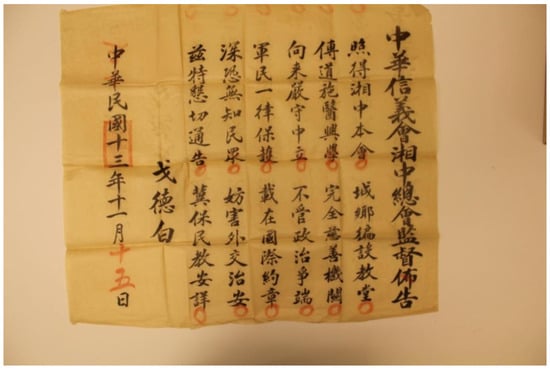 中華信義會湘中總會監督佈告
照得湘中本會 城鄉徧設教堂
傳道施醫興學 完全慈善機關
向來嚴守中立 不管政治爭端
軍民一律保護 載在國際約章
深恐無知民眾 妨害外交治安
茲特懇切通告 冀保民教安詳
戈德白
中華民國十三年十一月十五日